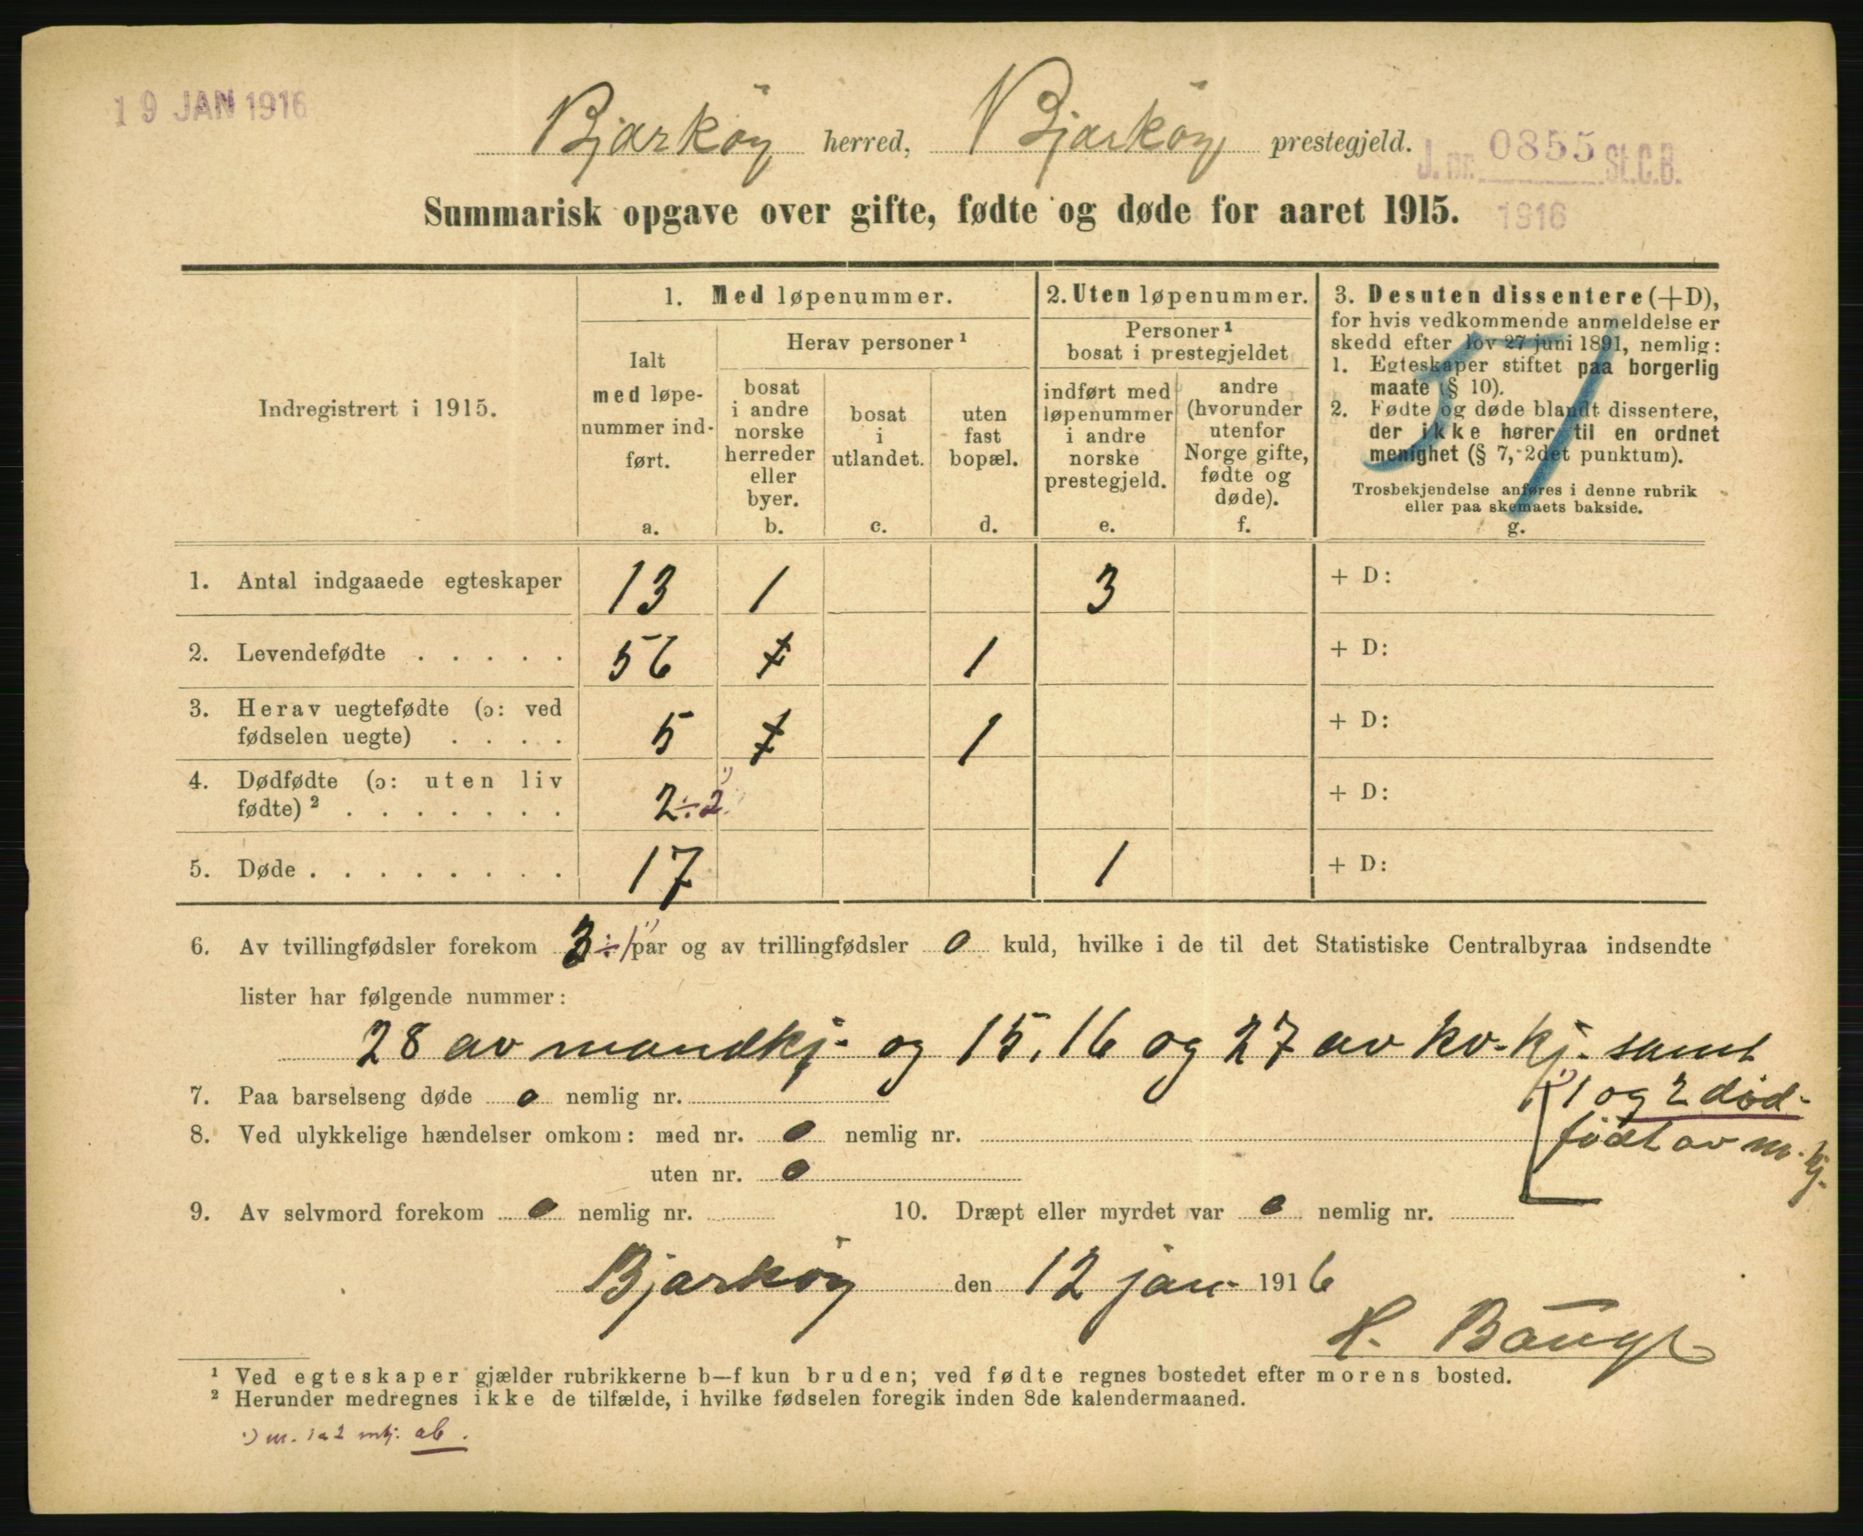 19 JAN 1916
Bjarkøy herred, Bjarkøy prestegjeld.
J. nr. 0855 St.C.B.
1916
Summarisk opgave over gifte, fødte og døde for aaret 1915.
Indregistrert i 1915.
1. Med løpenummer.
Ialt
med løpe-
nummer ind-
ført.
a.
Herav personer ¹
bosat
i andre
norske
herreder
eller
byer.
b.
bosat
i
utlandet.
c.
uten
fast
bopæl.
d.
2. Uten løpenummer.
Personer ¹
bosat i prestegjeldet
indført med
løpenummer
i andre
norske
prestegjeld.
e.
andre
(hvorunder
utenfor
Norge gifte,
fødte og
døde).
f.
3. Desuten dissentere (+D),
for hvis vedkommende anmeldelse er
skedd efter lov 27 juni 1891, nemlig:
1. Egteskaper stiftet paa borgerlig
maate (§ 10).
2. Fødte og døde blandt dissentere,
der ikke hører til en ordnet
menighet (§ 7, 2det punktum).
Trosbekjendelse anføres i denne rubrik
eller paa skemaets bakside.
g.
1. Antal indgaaede egteskaper 13 1 3 + D:
2. Levendefødte . . . . . 56 1 1 + D:
3. Herav uegtefødte (ɔ: ved
fødselen uegte) . . . . 5 1 1 + D:
4. Dødfødte (ɔ: uten liv
fødte) ² . . . . . . . 2 ÷ 2 + D:
5. Døde . . . . . . . . 17 1 + D:
6. Av tvillingfødsler forekom 3 ÷ 1 par og av trillingfødsler 0 kuld, hvilke i de til det Statistiske Centralbyraa indsendte
lister har følgende nummer:
28 av mandkj. og 15, 16 og 27 av kv. kj. samt
1 og 2 død-
født av m. kj.
7. Paa barselseng døde 0 nemlig nr.
8. Ved ulykkelige hændelser omkom: med nr. 0 nemlig nr.
uten nr. 0
9. Av selvmord forekom 0 nemlig nr. 10. Dræpt eller myrdet var 0 nemlig nr.
Bjarkøy den 12 jan. 1916
¹ Ved egteskaper gjælder rubrikkerne b—f kun bruden; ved fødte regnes bostedet efter morens bosted.
² Herunder medregnes ikke de tilfælde, i hvilke fødselen foregik inden 8de kalendermaaned.